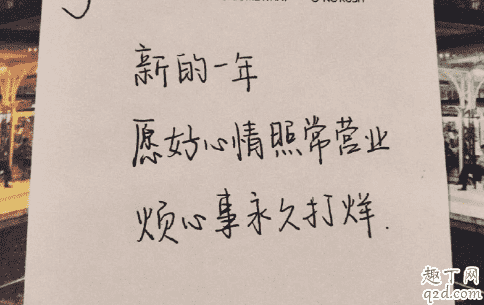 新的一年
愿好心情照常营业
烦心事永久打烊.
趣丁网
q2d.com